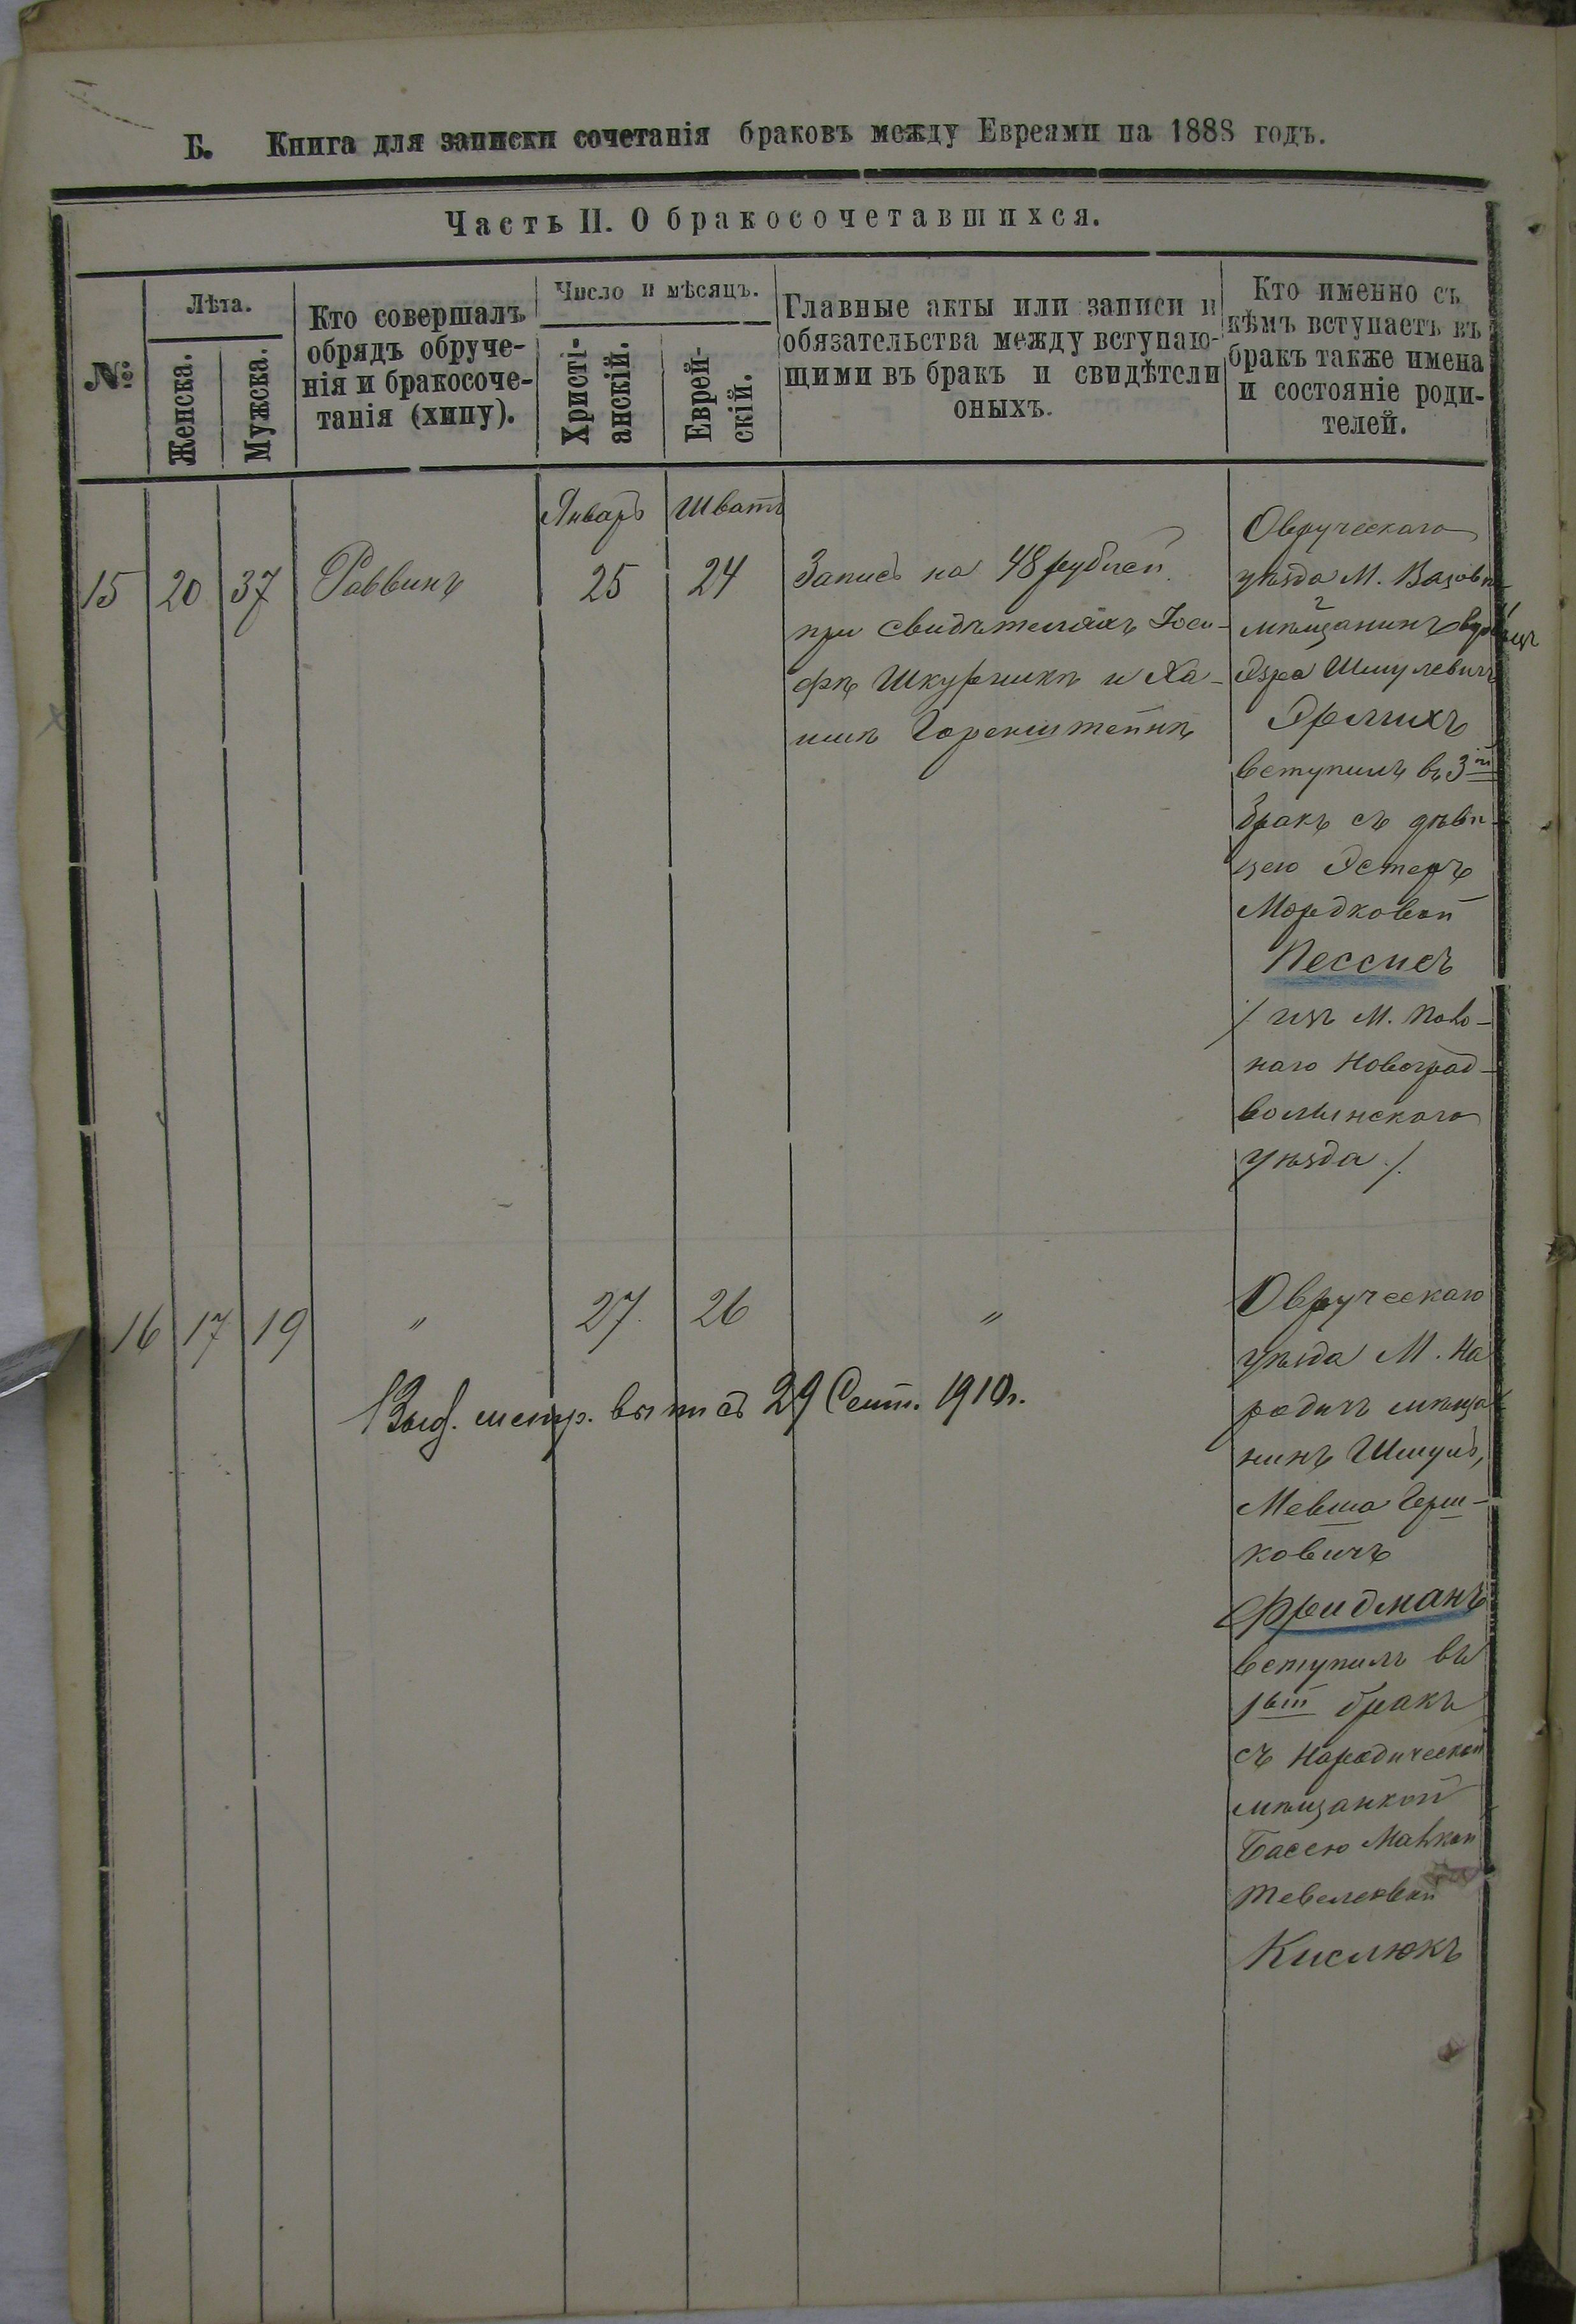 Б. Книга для записки сочетанія браковъ между Евреями на 1888 годъ.
Часть II. О бракосочетавшихся.
№
Лѣта.
Женска.
Мужска.
Кто совершалъ
обрядъ обруче-
нія и бракосоче-
танія (хипу).
Число и мѣсяцъ.
Христі-
анскій.
Еврей-
скій.
Главные акты или записи и
обязательства между вступаю-
щими въ бракъ и свидѣтели
оныхъ.
Кто именно съ
кѣмъ вступаетъ въ
бракъ также имена
и состояніе роди-
телей.
Январь Шватъ
15 20 37 Раввинъ 25 24
Запись на 48 рублей
при свидѣтеляхъ Іоси-
фѣ Шкурникѣ и Ха-
имѣ Горенштейнѣ
Овручскаго
уѣзда М.
мѣщанинъ вдовецъ
Эзра Шмулевичъ
Эрлихъ
вступилъ въ 3й
бракъ съ дѣви-
цею Эстеръ
Мордковой
Пессисъ
/изъ М.
наго Новоград-
волынскаго
уѣзда/.
16 17 19 " 27 26 "
Выд. метр. выпись 29 Сент. 1910г.
Овручскаго
уѣзда М. На
родичъ мѣща
нинъ Шмуль,
Мевша Герш-
ковичъ
Фридманъ
вступилъ въ
1ый бракъ
съ Народической
мѣщанкой
Бассею
Тевелевой
Кислюкъ